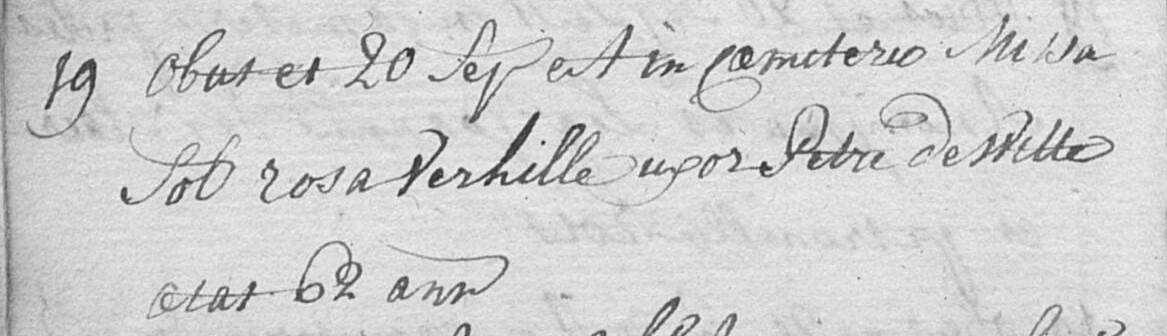 19 obiit et 20 Sep est in cæmiterio Missa
Sol rosa Verhille uxor Petri de Witte
ætat 62 ann